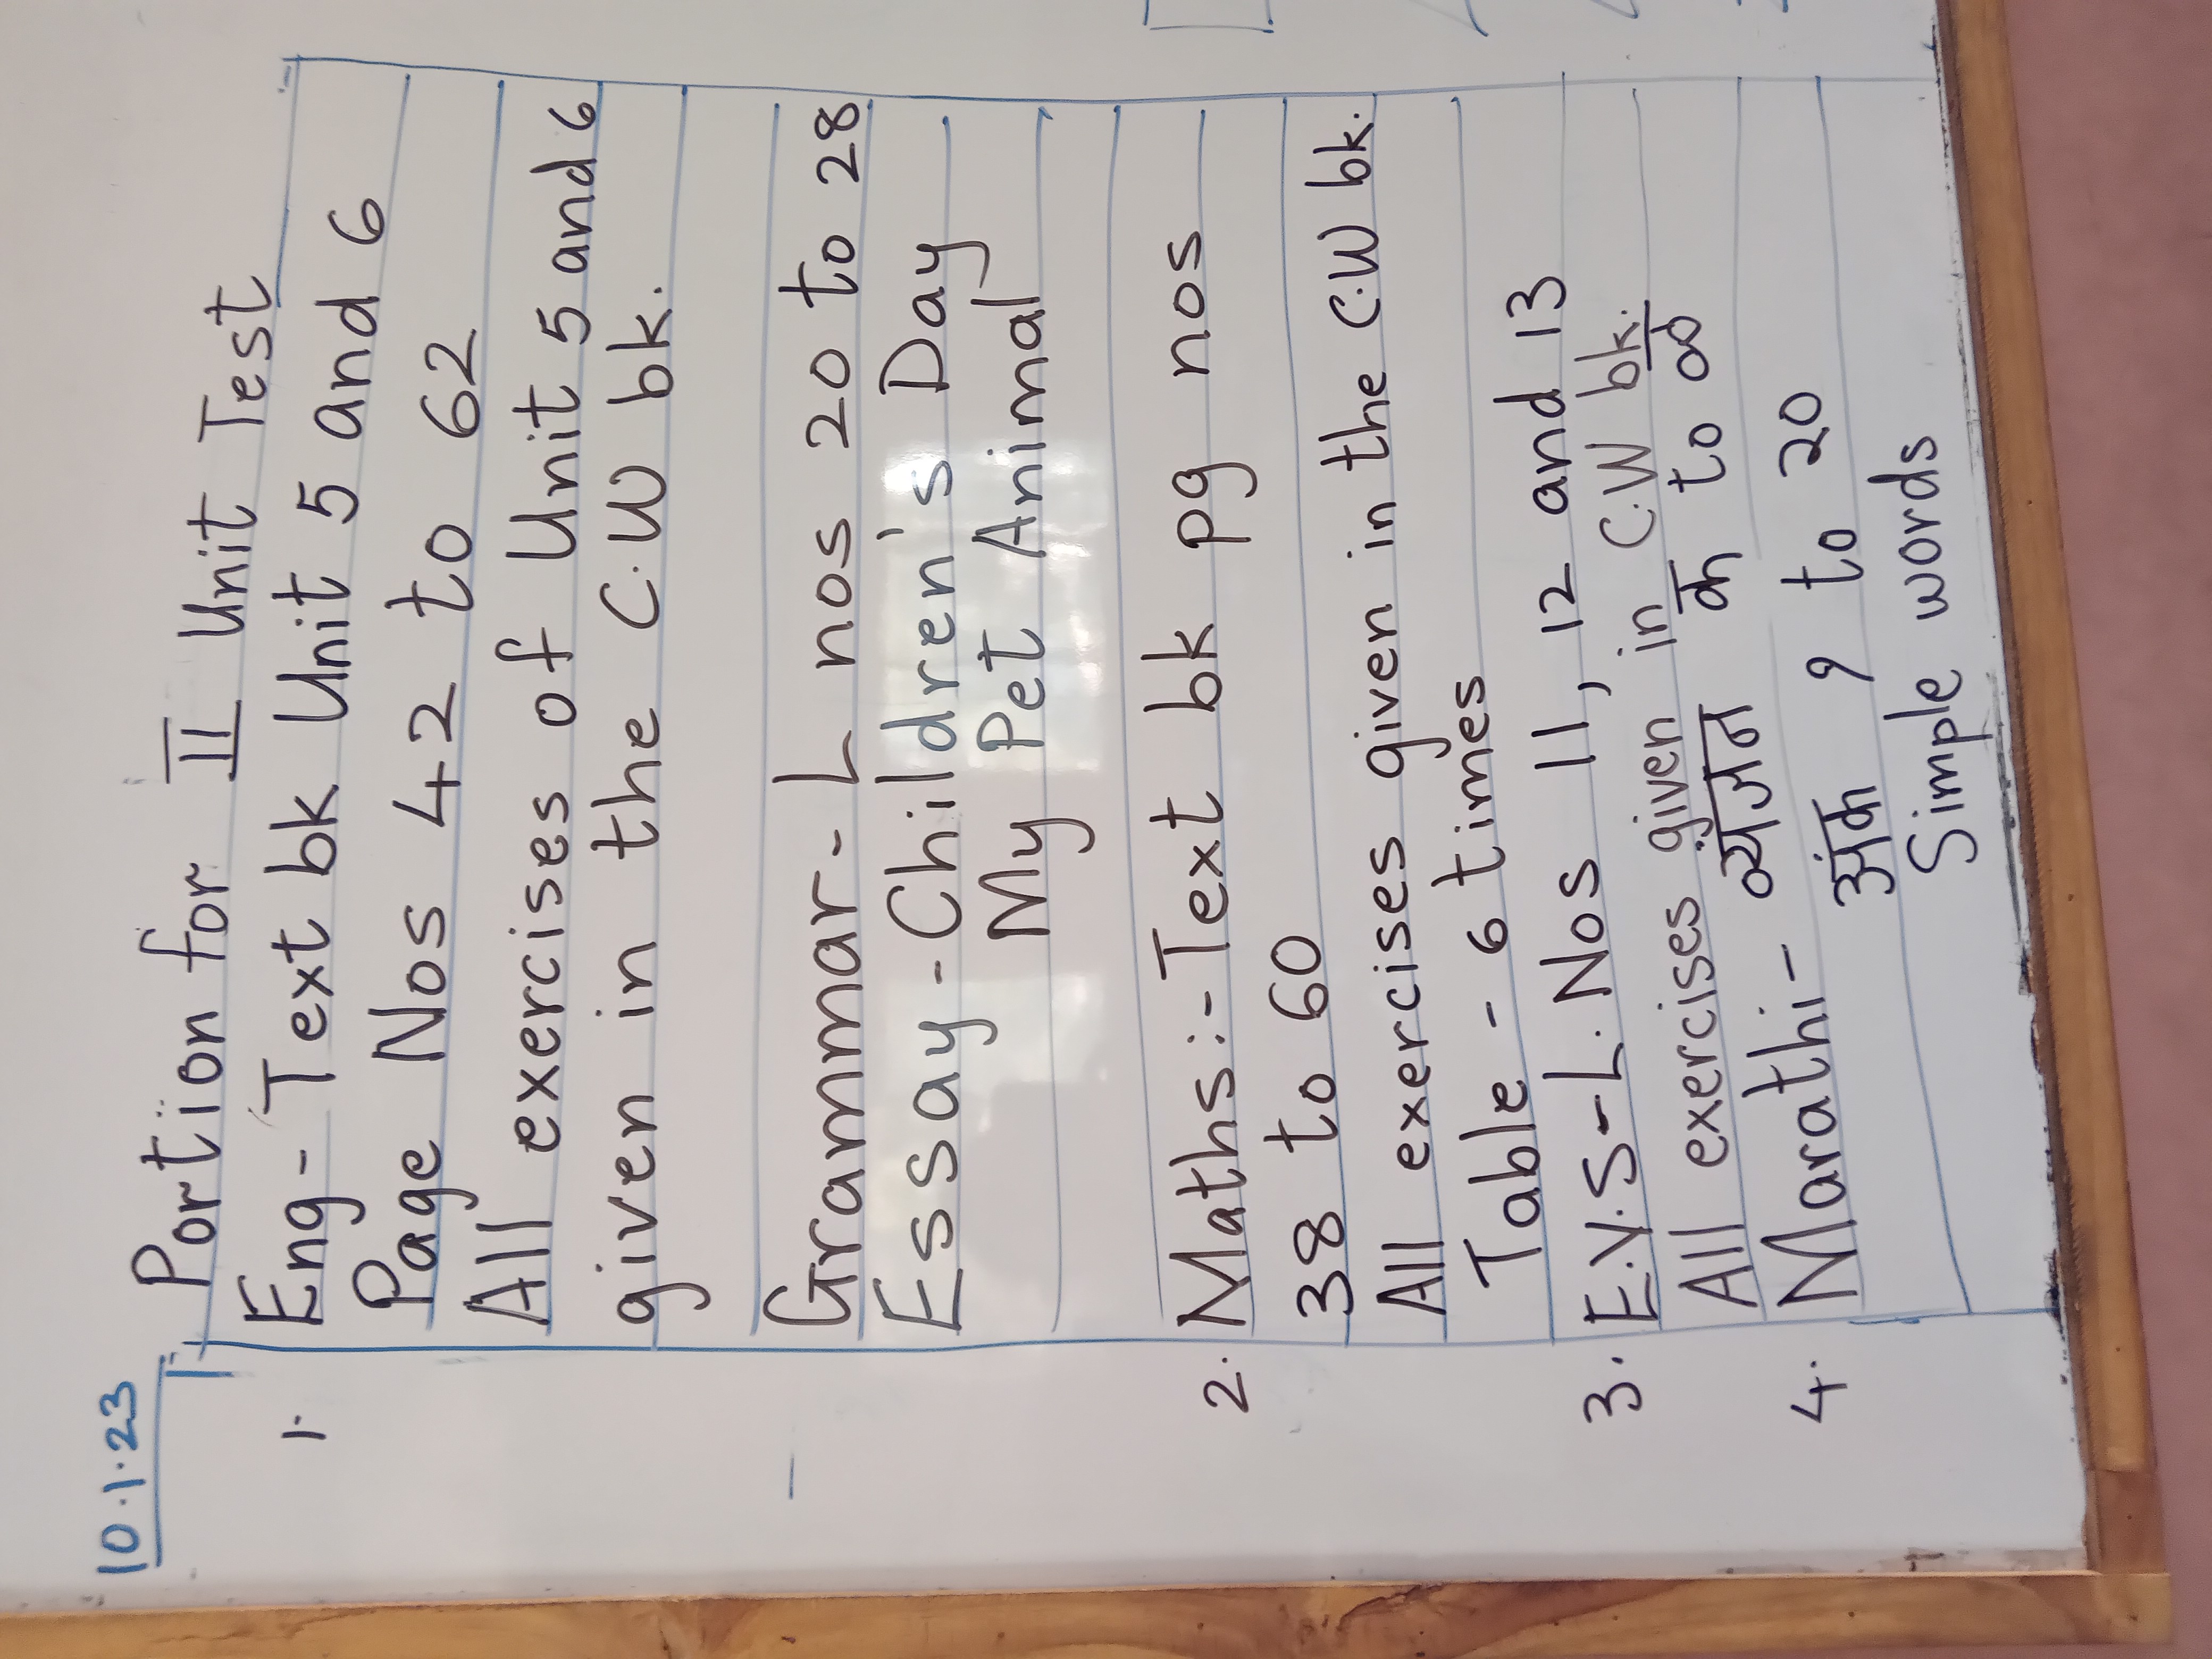 10.1.23
Portion for II Unit Test
1. Eng- Text bk Unit 5 and 6
Page Nos 42 to 62
All exercises of Unit 5 and 6
given in the C.W bk.
Grammar- L nos 20 to 28
Essay - Children's Day
My Pet Animal
2. Maths:- Text bk pg nos
38 to 60
All exercises given in the C.W bk.
Table - 6 times
3. E.V.S - L. Nos 11, 12 and 13
All exercises given in C.W bk.
4. Marathi - व्यंजन क to ळ
अंक १ to २०
Simple words